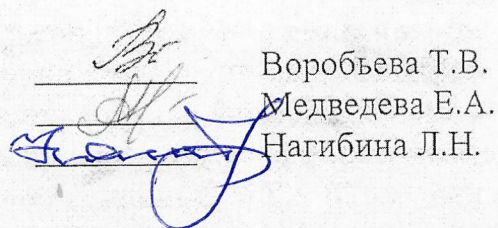 Воробьева Т.В.
Медведева Е.А.
Нагибина Л.Н.